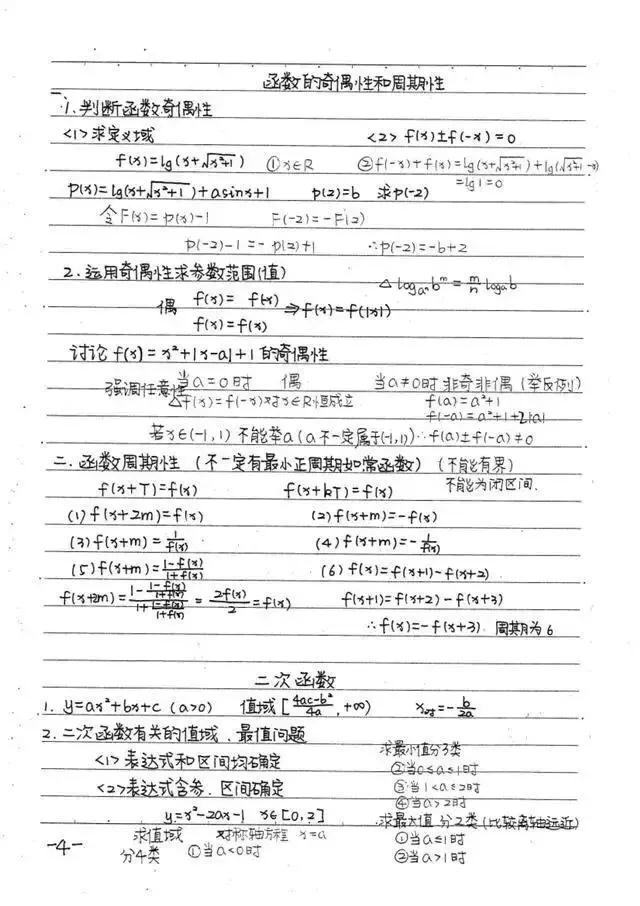 函数的奇偶性和周期性
1.判断函数奇偶性
<1>求定义域 <2> f(x)±f(-x)=0
f(x)=lg(x+√x²+1) ①x∈R ②f(-x)+f(x)=lg(x+√x²+1)+lg(√x²+1-x)
=lg1=0
p(x)=lg(x+√x²+1)+asinx+1 p(2)=b 求p(-2)
令F(x)=p(x)-1 F(-2)=-F(2)
p(-2)-1=-p(2)+1 ∴p(-2)=-b+2
2.运用奇偶性求参数范围(值) △ log_aⁿ b^m = m/n log_a b
偶 f(x)=f(-x) ⇒f(x)=f(|x|)
f(x)=f(x)
讨论 f(x)=x²+|x-a|+1 的奇偶性
当a=0时 偶 当a≠0时 非奇非偶(举反例)
强调任意性 △f(x)=f(-x)对x∈R恒成立 f(a)=a²+1
f(-a)=a²+1+2|a|
若x∈(-1,1) 不能举a(a不一定属于(-1,1)) ∴f(a)±f(-a)≠0
二.函数周期性(不一定有最小正周期如常函数)(不能有界)
f(x+T)=f(x) f(x+kT)=f(x) 不能为闭区间.
(1) f(x+2m)=f(x) (2) f(x+m)=-f(x)
(3) f(x+m)=1/f(x) (4) f(x+m)=-1/f(x)
(5) f(x+m)=1-f(x)/1+f(x) (6) f(x)=f(x+1)-f(x+2)
f(x+2m)=(1-(1-f(x))/(1+f(x)))/(1+(1-f(x))/(1+f(x)))=2f(x)/2=f(x) f(x+1)=f(x+2)-f(x+3)
∴f(x)=-f(x+3) 周期为6
二次函数
1. y=ax²+bx+c (a>0) 值域[4ac-b²/4a,+∞) x对=-b/2a
2.二次函数有关的值域、最值问题
<1>表达式和区间均确定
<2>表达式含参.区间确定
y=x²-2ax-1 x∈[0,2]
求值域 对称轴方程 x=a
分4类 ①当a<0时
求最小值分3类
②当0≤a≤1时
③当1<a≤2时
④当a>2时
求最大值 分2类(比较离轴远近)
①当a≤1时
②当a>1时
-4-